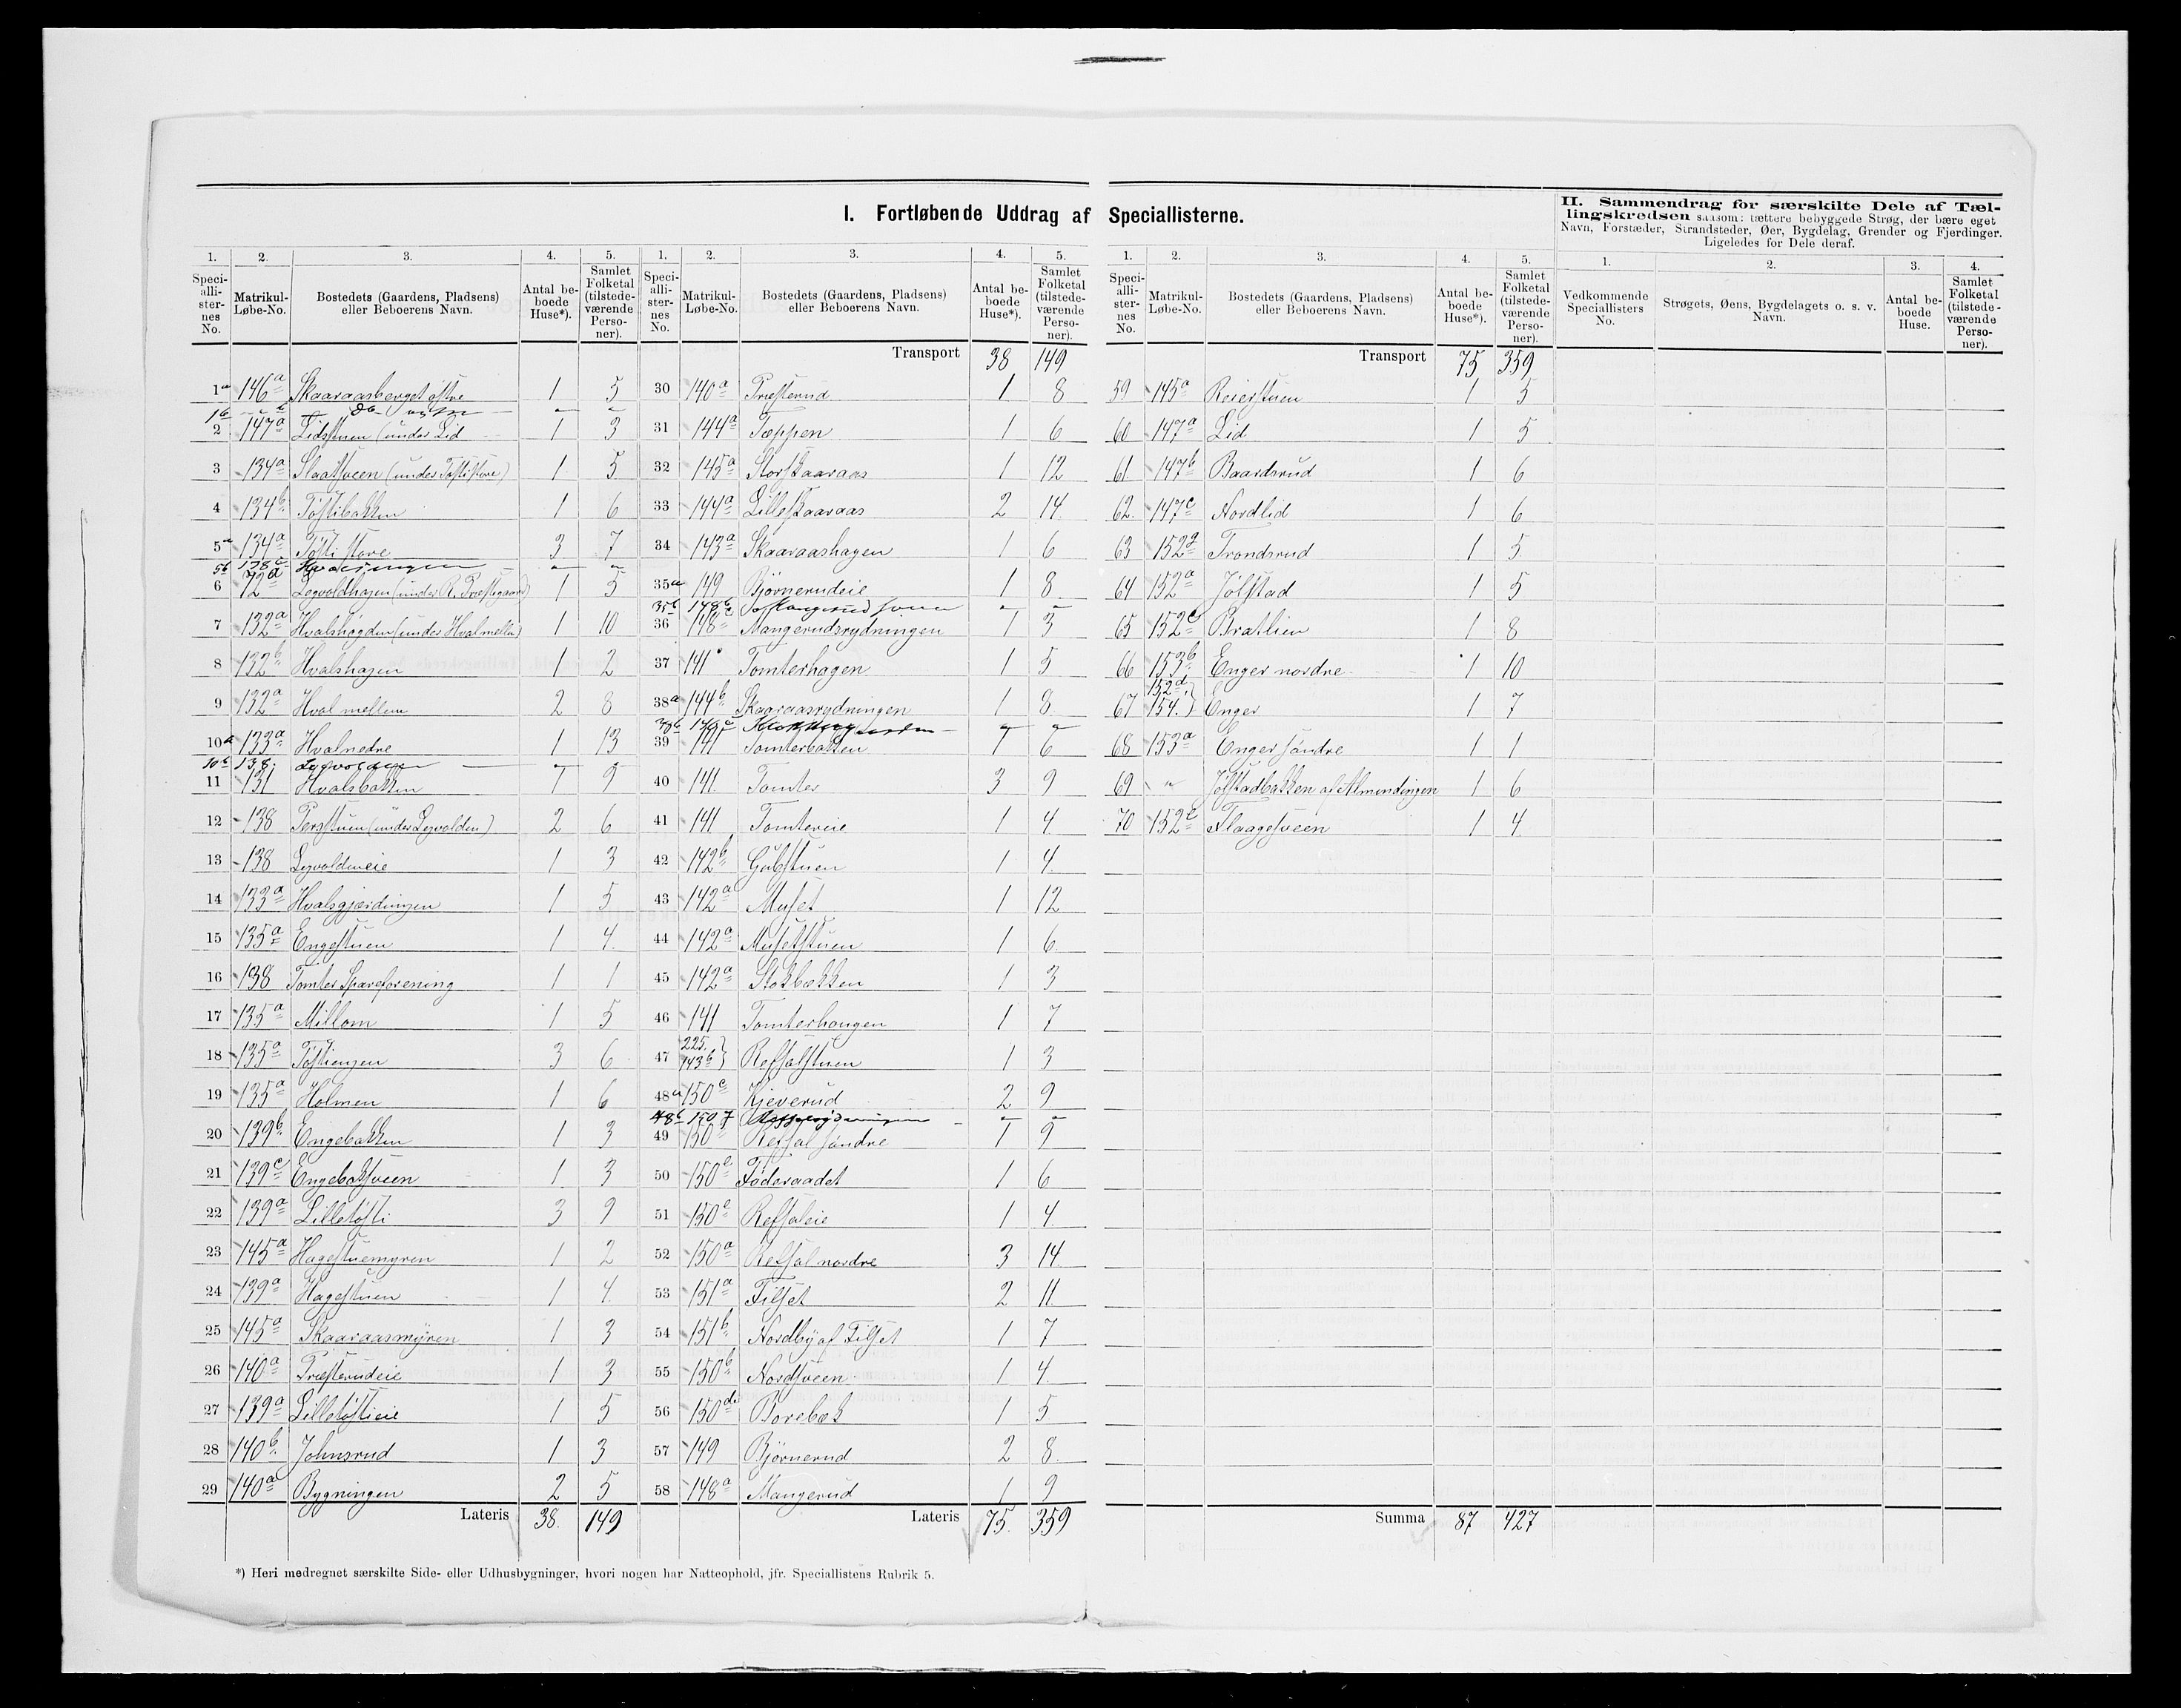 I. Fortløbende Uddrag af Speciallisterne.
II. Sammendrag for særskilte Dele af Tæl-
lingskredsen saasom: tættere bebyggede Strøg, der bære eget
Navn, Forstæder, Strandsteder, Øer, Bygdelag, Grender og Fjerdinger.
Ligeledes for Dele deraf.
1. 2. 3. 4. 5.
Speciallisternes No. Matrikul-Løbe-No. Bostedets (Gaardens, Pladsens) eller Beboerens Navn. Antal beboede Huse*). Samlet Folketal (tilstedeværende Personer).
1a 146a Skaaraasberget østre 1 5
1b
2 147a Lidstuen (under Lid 1 3
3 134a Slaatsveen (under Tøstistore) 1 5
4 134b Tøstibakken 1 6
5a 134a Tøsti store 3 7
5b 138c
6 72d Legvoldhagen (under R. Præstegaard) 1 5
7 132a Hvalshøgden (under Hval mellem) 1 10
8 132b Hvalshagen 1 2
9 132a Hval mellem 2 8
10a 133a Hval nedre 1 13
10b 138
11 131 Hvalsbakken 1 9
12 138 Perstuen (under Legvolden) 2 6
13 138 Legvoldeneie 1 3
14 133a Hvalsgjærdingen 1 5
15 135a Engestuen 1 4
16 138 Tomter Spareforening 1 1
17 135a Millom 1 5
18 135a Tøstiengen 3 6
19 135a Holmen 1 6
20 139b Engebakken 1 3
21 139c Engebaksveen 1 3
22 139a Lilletøsti 3 9
23 145a Hagestuemyren 1 2
24 139a Hagestuen 1 4
25 145a Skaaraasmyren 1 3
26 140a Præsterudeie 1 3
27 139a Lilletøstieie 1 5
28 140b Johnsrud 1 3
29 140a Bygningen 2 5
Lateris 38. 149
1. 2. 3. 4. 5.
Speciallisternes No. Matrikul-Løbe-No. Bostedets (Gaardens, Pladsens) eller Beboerens Navn. Antal beboede Huse*). Samlet Folketal (tilstedeværende Personer).
Transport 38 149
30 140a Præsterud 1 8
31 144a Tæppen 1 6
32 145a Storskaaraas 1 12
33 144a Lilleskaaraas 2 14
34 143a Skaaraashagen 1 6
35a 149 Bjørnerudeie 1 8
35b 148b
36 148c Mangerudsrydningen 1 3
37 141 Tomterhagen 1 5
38a 144b Skaaraasrydningen 1 8
38b
39 141 Tomterbakken 1 6
40 141 Tomter 3 9
41 141 Tomtereie 1 4
42 142b Gubstuen 1 4
43 142a Muset 1 12
44 142a Musetstuen 1 6
45 142a Stokbækken 1 3
46 141 Tomterhaugen 1 7
47 225. 143b Refsalstuen 1 3
48a 150c Kjeverud 2 9
48b 150f
49 150 Refsal søndre 1 9
50 150e Føderaadet 1 6
51 150e Refsaleie 1 4
52 150a Refsal nordre 3 14
53 151a Filset 2 11
54 151b Nordby af Filset 1 7
55 150b Nordsveen 1 4
56 150d Borebæk 1 5
57 149 Bjørnerud 2 8
58 148a Mangerud 1 9
Lateris 75. 359
1. 2. 3. 4. 5.
Speciallisternes No. Matrikul-Løbe-No. Bostedets (Gaardens, Pladsens) eller Beboerens Navn. Antal beboede Huse*). Samlet Folketal (tilstedeværende Personer).
Transport 75 359
59 145a Reierstuen 1 5
60 147a Lid 1 5
61. 147b Baardsrud 1 6
62. 147c Nordlid 1 6
63 152g Trondsrud 1 5
64 152a Jølstad 1 5
65 152c Bratlien 1 8
66 153b Enger nordre 1 10
67 152d. 154. Enger 1 7
68 153a Enger søndre 1 1
69 " Jølstadbakken af Almendingen 1 6
70 152e Flaagesveen 1 4
Summa 87 427
1. 2. 3. 4.
Vedkommende Speciallisters No. Strøgets, Øens, Bygdelagets o. s. v. Navn. Antal beboede Huse. Samlet Folketal (tilstedeværende Personer).
*) Heri medregnet særskilte Side- eller Udhusbygninger, hvori nogen har Natteophold, jfr. Speciallistens Rubrik 5.